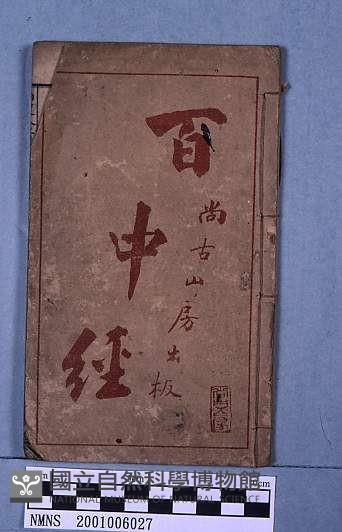 百中經
尚古山房出板
國立自然科學博物館
NATIONAL MUSEUM OF NATURAL SCIENCE
cm
NMNS 2001006027